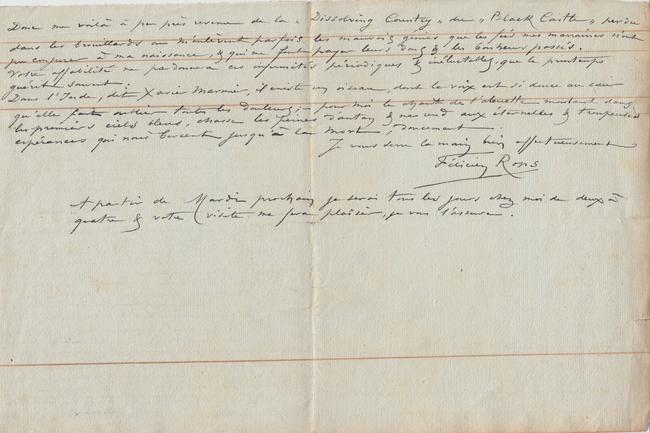 Donc me voilà à peu près revenu de la „ Dissolving Country „ du „ Black Castle „ perdu
dans les brouillards où m'enlèvent parfois les mauvais génies que les fées mes marraines n'ont
pu conjurer à ma naissance, & qui me font payer leurs dons & les bonheurs passés.
Votre affabilité me pardonnera ces infirmités périodiques & inéluctables, que le printemps
guérit souvent.
Dans l'Inde, dit Xavier Marmier, il existe un oiseau, dont la voix est si douce au cœur
qu'elle fait oublier toutes les douleurs; – pour moi le chant de l'alouette montant dans
les premiers ciels bleus, chasse les peines d'antan & me rend aux éternelles & trompeuses
espérances qui nous bercent jusqu'à la mort, doucement.
Je vous serre la main bien affectueusement
Félicien Rops
A partir de Mardi prochain je serai tous les jours chez moi de deux à
quatre & votre visite me fera plaisir, je vous l'assure.